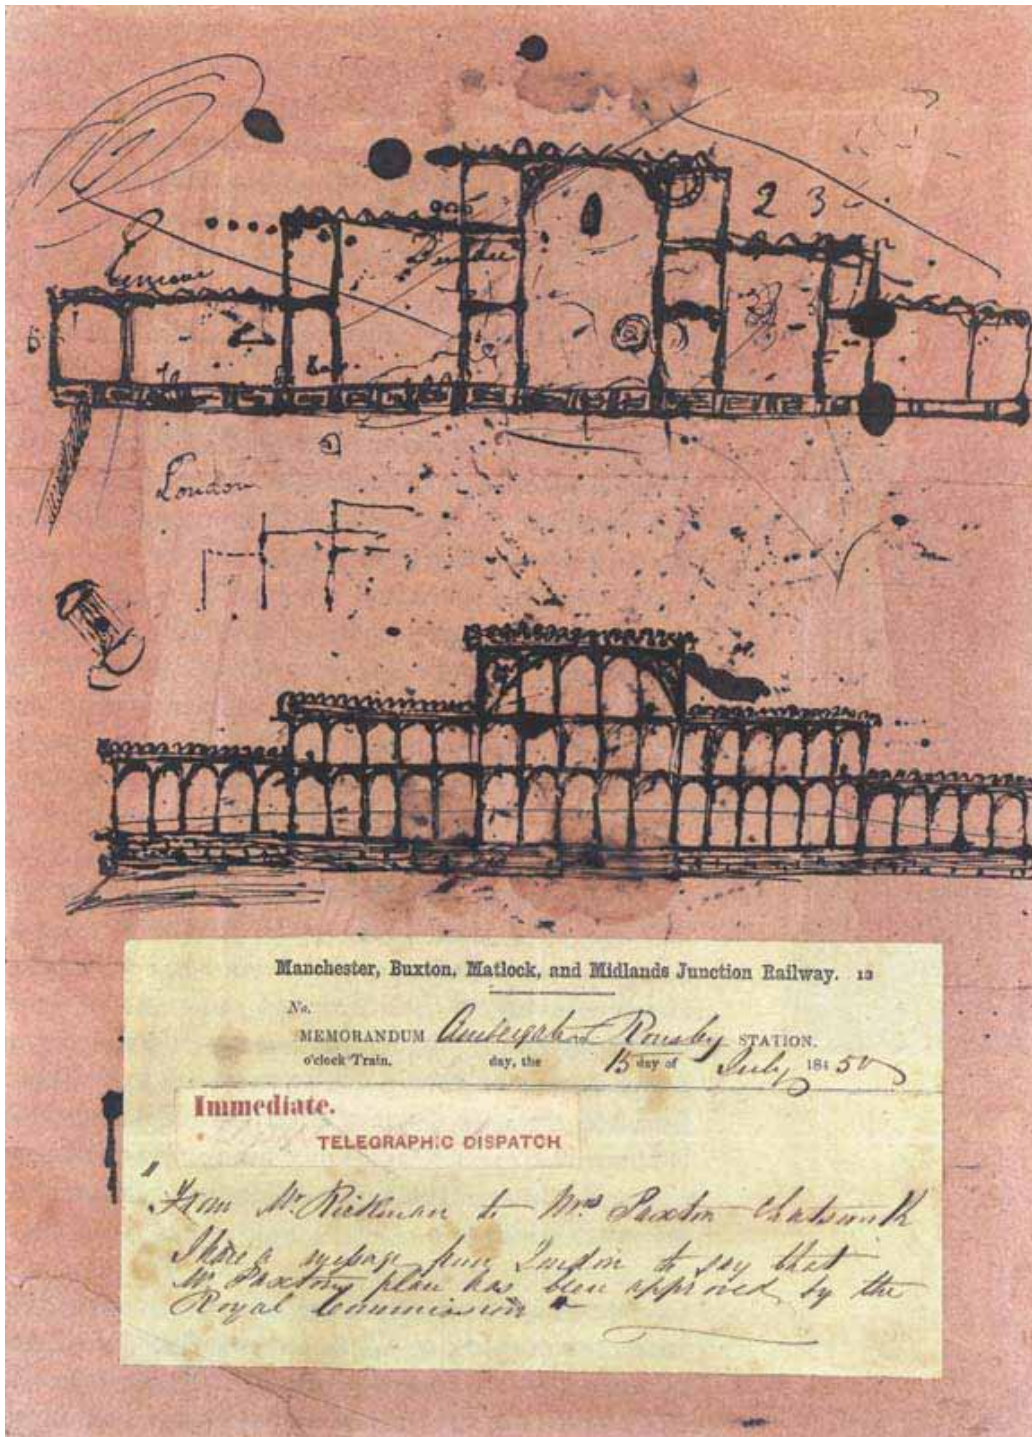 2 3
Dundee
London
Manchester, Buxton, Matlock, and Midlands Junction Railway. 13
No.
MEMORANDUM Ambergate Rowsley STATION.
o'clock Train. day, the 15 day of July 184 50
Immediate.
TELEGRAPHIC DISPATCH
"From Mr Rickman to Mrs Paxton Chatsworth
I have a message from London to say that
Mr Paxtons plan has been approved by the
Royal Commission"